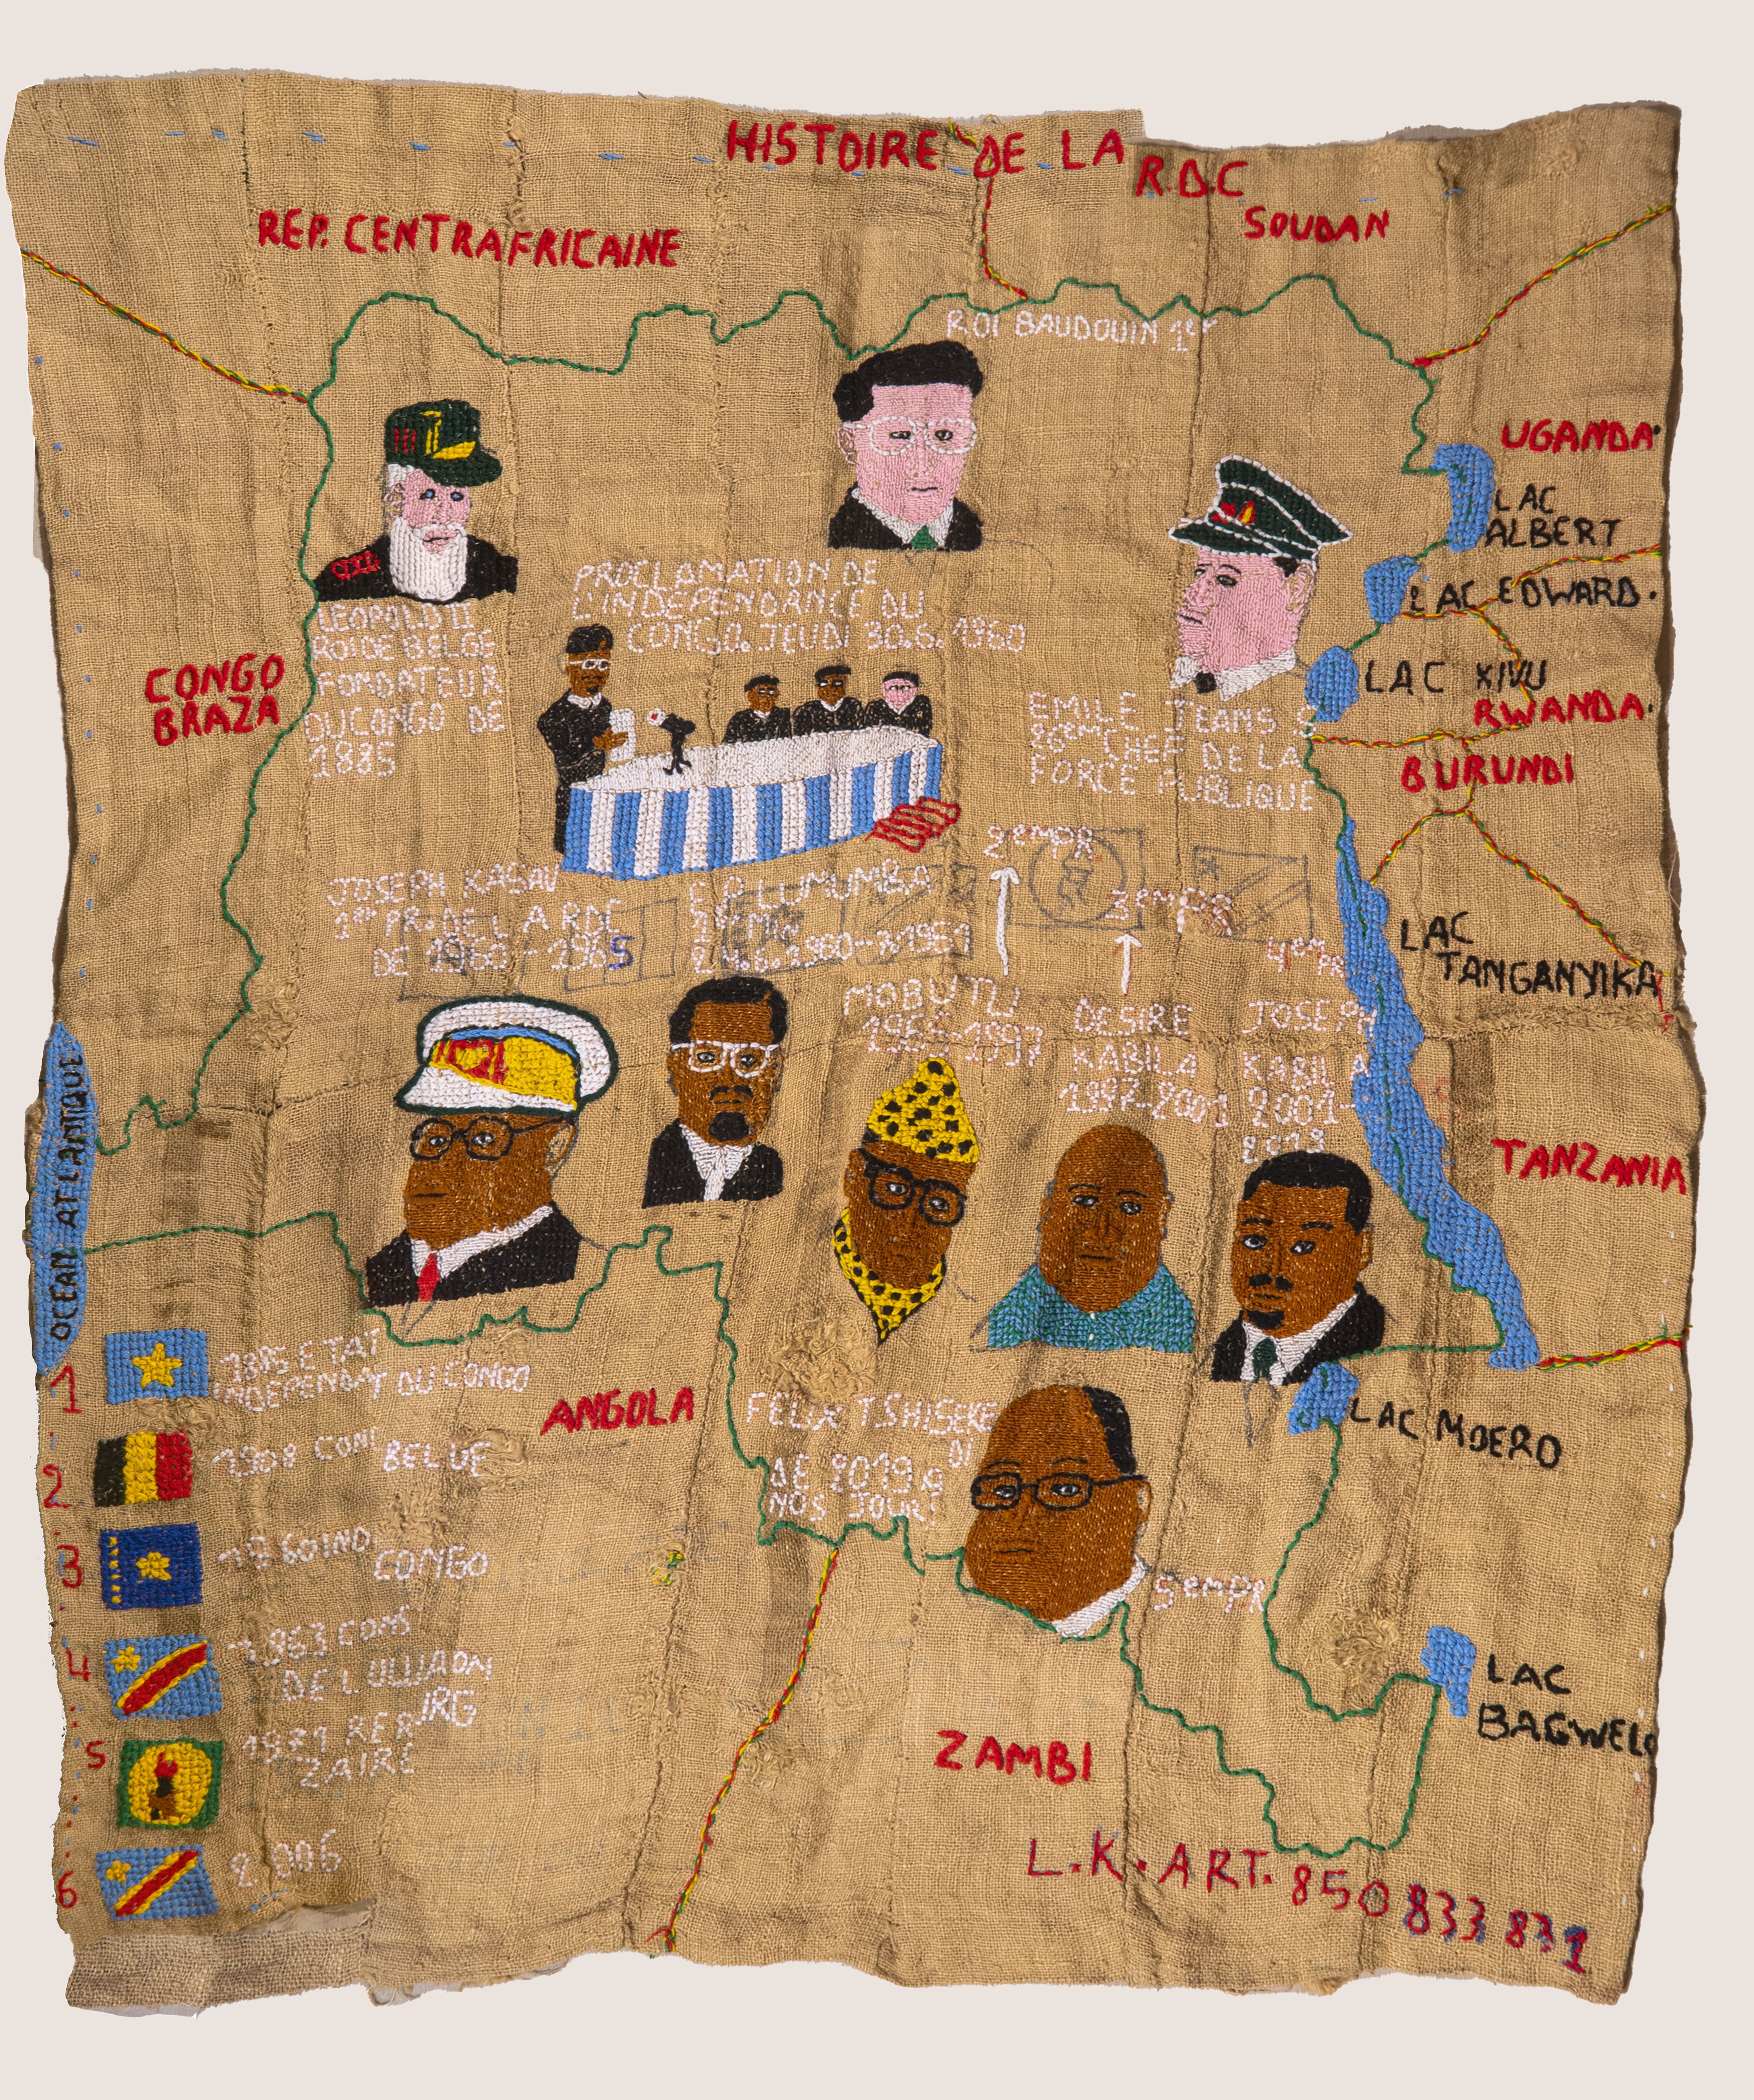 HISTOIRE DE LA R.D.C
REP. CENTRAFRICAINE
SOUDAN
ROI BAUDOUIN 1er
UGANDA
LAC
ALBERT
LAC EDWARD.
LAC KIVU
RWANDA
BURUNDI
CONGO
BRAZA
LEOPOLD II
ROI DE BELGE
FONDATEUR
DU CONGO DE
1885
PROCLAMATION DE
L'INDEPENDANCE DU
CONGO. JEUDI 30.6.1960
EMILE JEANS
CHEF DE LA
FORCE PUBLIQUE
JOSEPH KASAV
1er PR. DE LA RDC
DE 1960-1965
LUMUMBA
2emPR
3emPR
4emPR
MOBUTU
1965-1997
DESIRE
KABILA
1997-2001
JOSEPH
KABILA
2001-
2018
LAC
TANGANYIKA
TANZANIA
OCEAN ATLANTIQUE
1
1885 ETAT
INDEPENDAT DU CONGO
2
1908 CON BELGE
3
1960 IND
CONGO
4
1963 CONS
DE LULUA
5
1971 REP
ZAIRE
6
2006
ANGOLA
FELIX TSHISEKE
DI
DE 2019 A
NOS JOURS
5emPR
LAC MOERO
LAC
BAGWELO
ZAMBI
L.K.ART. 850 833 831